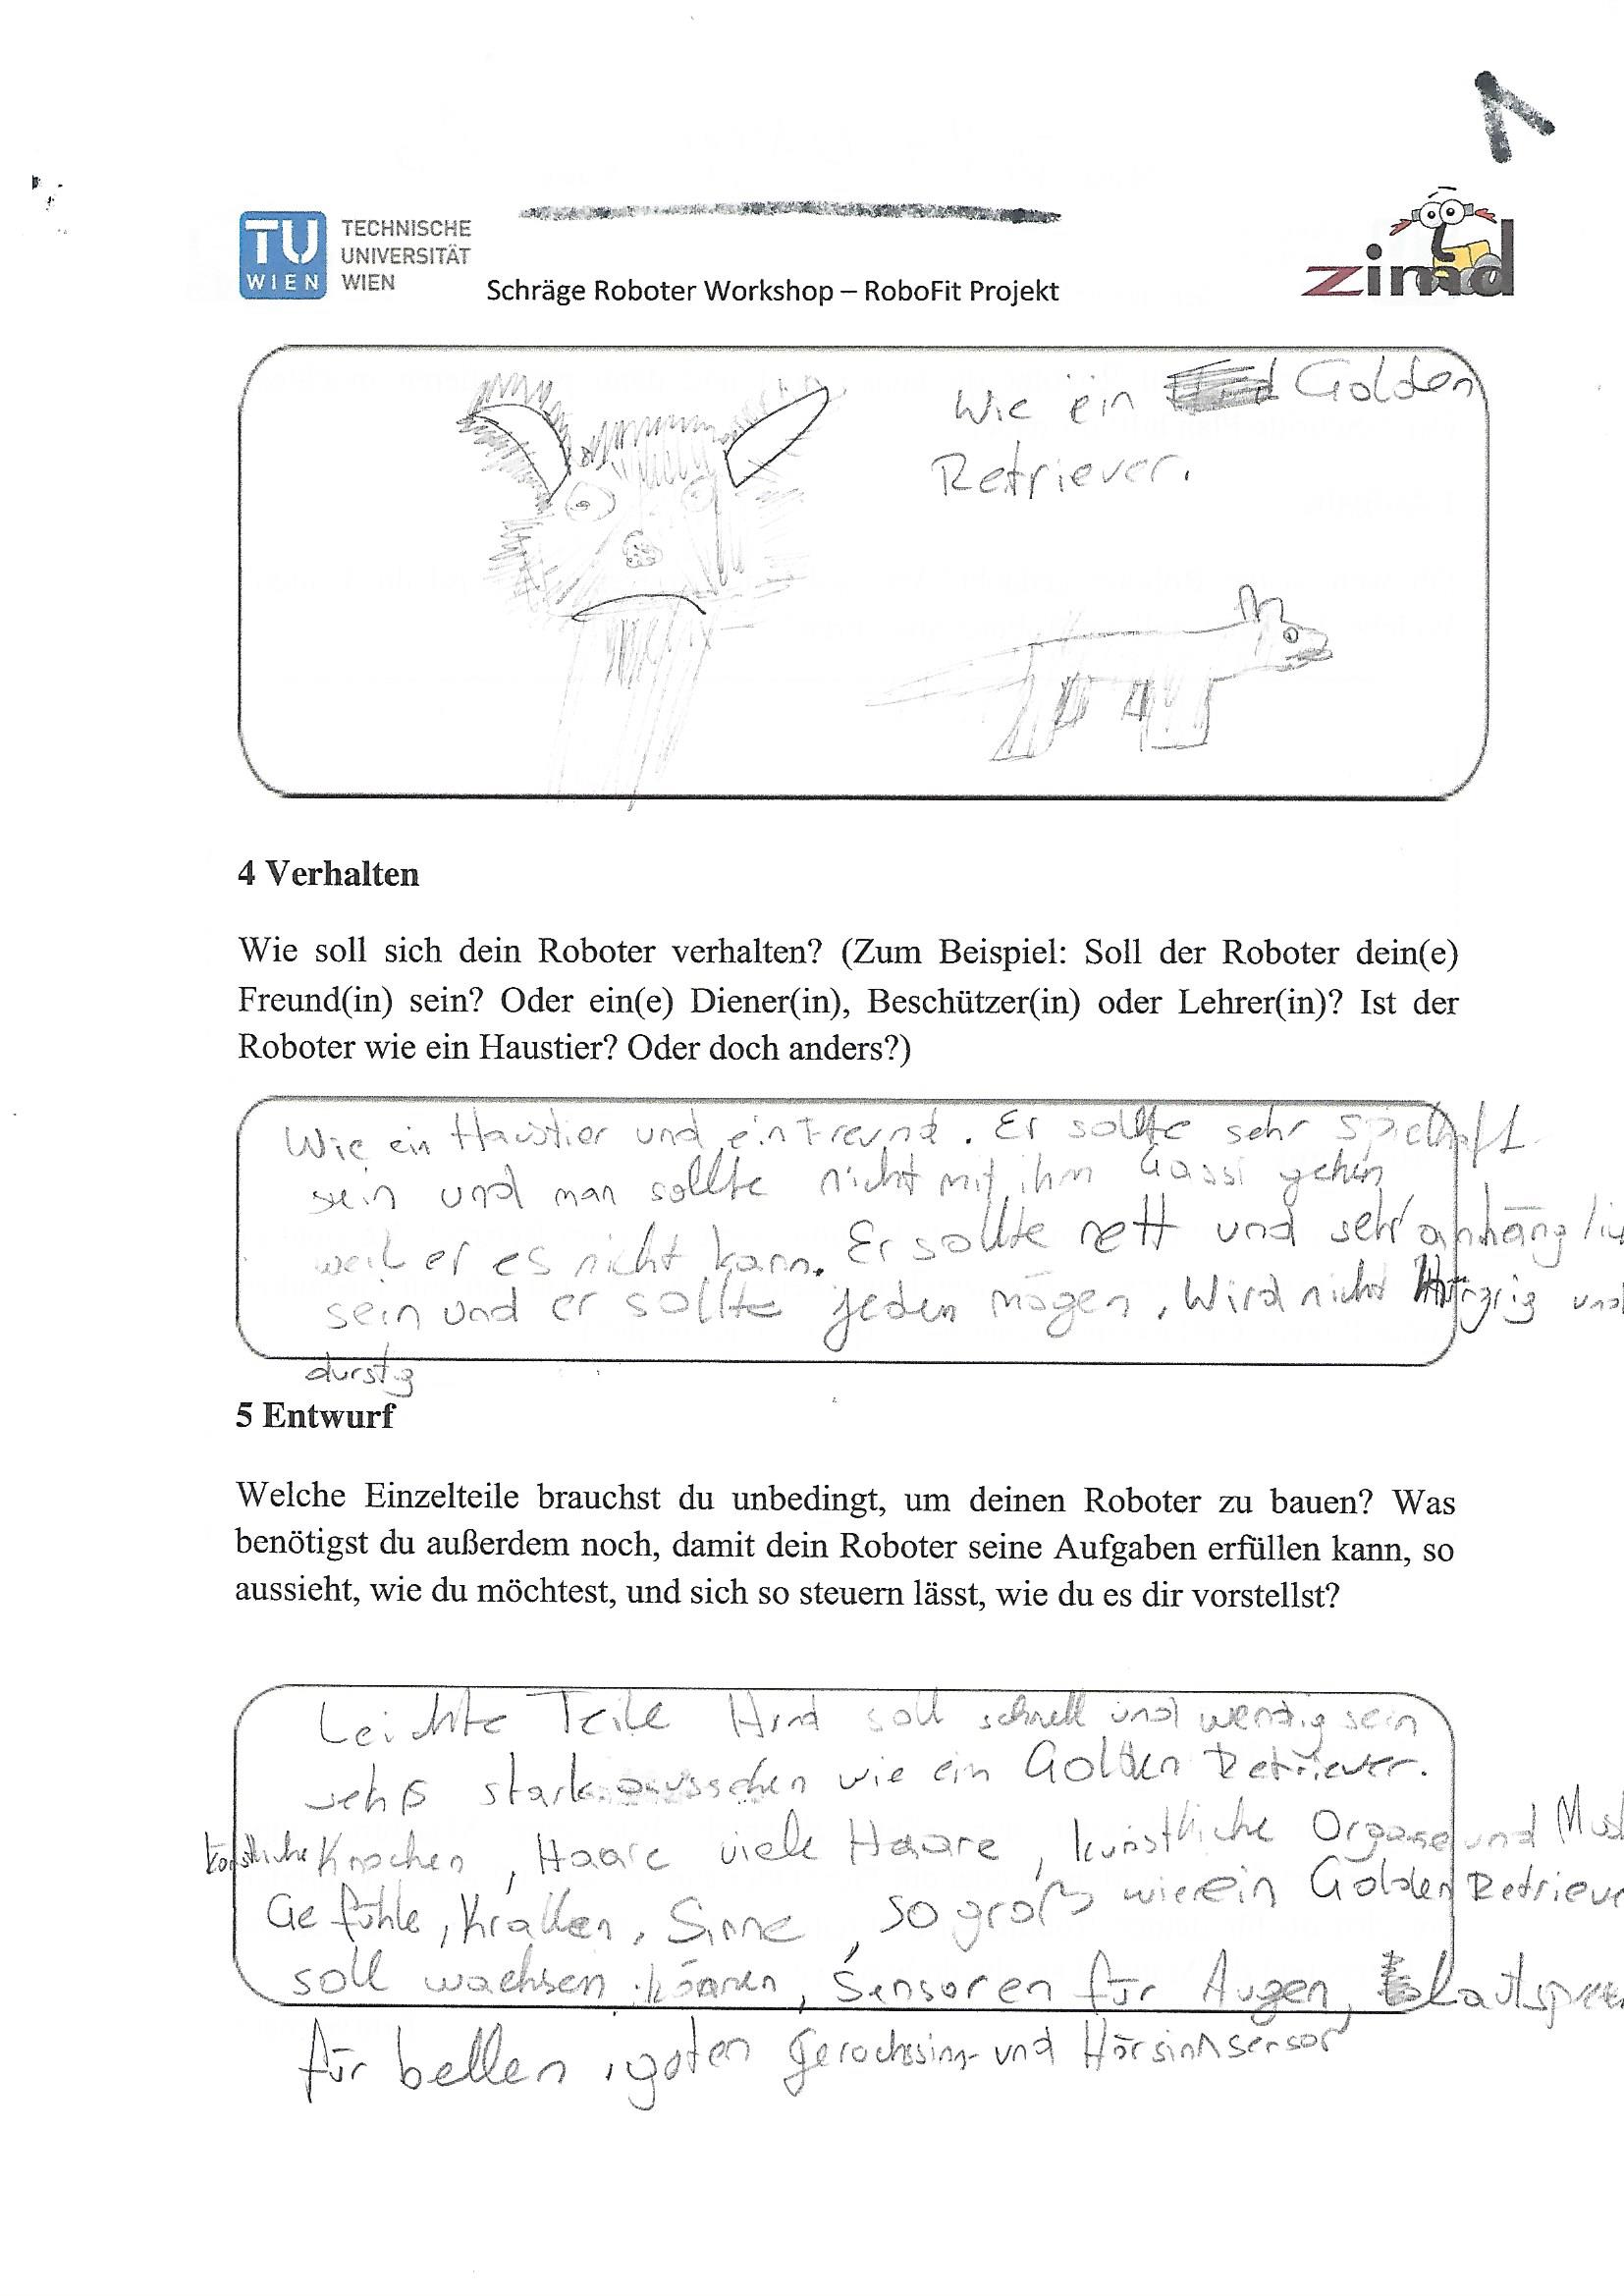 TU WIEN TECHNISCHE UNIVERSITÄT WIEN
Schräge Roboter Workshop – RoboFit Projekt
zimd
Wie ein Golden
Retriever.
4 Verhalten
Wie soll sich dein Roboter verhalten? (Zum Beispiel: Soll der Roboter dein(e)
Freund(in) sein? Oder ein(e) Diener(in), Beschützer(in) oder Lehrer(in)? Ist der
Roboter wie ein Haustier? Oder doch anders?)
Wie ein Haustier und ein Freund. Er sollte sehr spielhaft
sein und man sollte nicht mit ihm Gassi gehen
weil er es nicht kann. Er sollte nett und sehr anhänglic
sein und er sollte jeden mögen, Wird nicht und
durstig
5 Entwurf
Welche Einzelteile brauchst du unbedingt, um deinen Roboter zu bauen? Was
benötigst du außerdem noch, damit dein Roboter seine Aufgaben erfüllen kann, so
aussieht, wie du möchtest, und sich so steuern lässt, wie du es dir vorstellst?
Leichte Teile Hund soll schnell und wendig sein
stark aussehen wie ein Golden Retriever.
künstliche Knochen, Haare viele Haare, künstliche Organe und Mus
Gefühle, Krallen, Sinne, so groß wie ein Golden Retrieve
soll wachsen können, Sensoren für Augen, Lautsprec
für bellen, guten Geruchssinn- und Hörsinnsensor